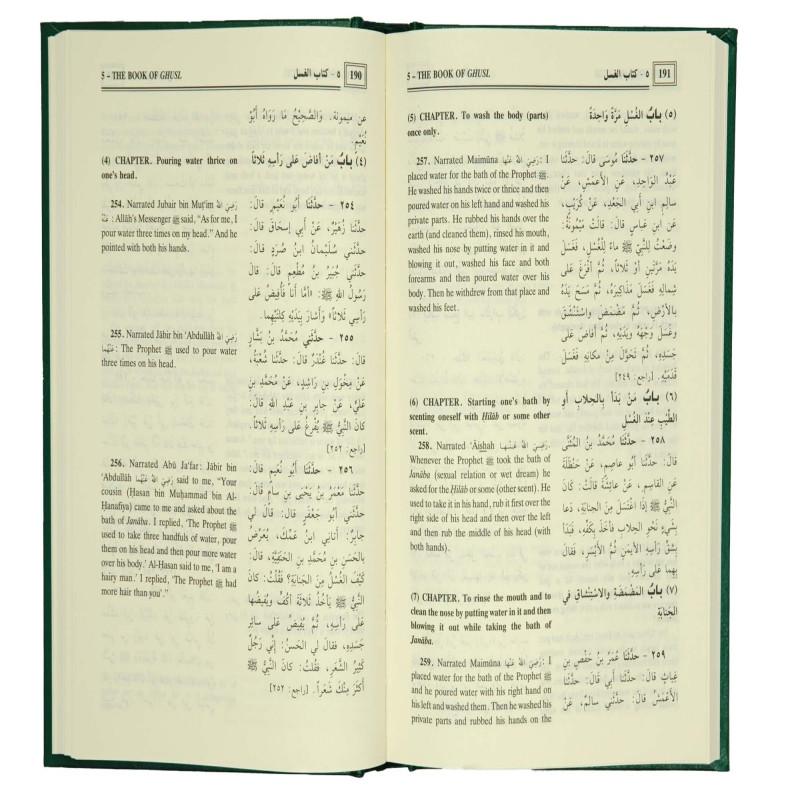 5 – THE BOOK OF GHUSL
٥ - كتاب الغسل
190
(4) CHAPTER. Pouring water thrice on
one's head.
254. Narrated Jubair bin Muṭ'im رَضِيَ اللهُ
عَنْهُ: Allâh's Messenger ﷺ said, "As for me, I
pour water three times on my head." And he
pointed with both his hands.
255. Narrated Jâbir bin 'Abdullâh رَضِيَ اللهُ
عَنْهُمَا: The Prophet ﷺ used to pour water
three times on his head.
256. Narrated Abû Ja'far: Jâbir bin
'Abdullâh رَضِيَ اللهُ عَنْهُمَا said to me, "Your
cousin (Ḥasan bin Muḥammad bin Al-
Ḥanafiya) came to me and asked about the
bath of Janâba. I replied, 'The Prophet ﷺ
used to take three handfuls of water, pour
them on his head and then pour more water
over his body.' Al-Ḥasan said to me, 'I am a
hairy man.' I replied, 'The Prophet ﷺ had
more hair than you'."
عن ميمونة. وَالصَّحِيْحُ مَا رَوَاهُ أَبُو
نُعَيْمٍ.
(٤) بَابُ مَنْ أَفَاضَ عَلَى رَأْسِهِ ثَلَاثاً
٢٥٤ - حدَّثَنَا أَبُو نُعَيْمٍ قَالَ:
حَدَّثَنَا زُهَيْرٌ، عَنْ أَبِي إِسْحَاقَ قَالَ:
حَدَّثَنِي سُلَيْمَانُ ابنُ صُرَدٍ قَالَ:
حَدَّثَنِي جُبَيْرُ بنُ مُطْعِمٍ قَالَ: قَالَ
رَسُولُ اللهِ ﷺ: «أَمَّا أَنَا فَأُفِيضُ عَلَى
رَأْسِي ثَلَاثاً» وَأَشَارَ بِيَدَيْهِ كِلْتَيْهِما.
٢٥٥ - حدَّثَنِي مُحَمَّدُ بنُ بَشَّارٍ
قَالَ: حَدَّثَنَا غُنْدَرٌ قَالَ: حَدَّثَنَا شُعْبَةُ،
عَنْ مِخْوَلِ بنِ رَاشِدٍ، عَنْ مُحَمَّدِ بنِ
عَلِيٍّ، عَنْ جابِرِ بنِ عَبْدِ اللهِ قَالَ:
كَانَ النَّبِيُّ ﷺ يُفْرِغُ عَلَى رَأْسِهِ ثَلَاثاً.
[راجع: ٢٥٢]
٢٥٦ - حدَّثَنَا أَبُو نُعَيْمٍ قَالَ:
حَدَّثَنَا مَعْمَرُ بنُ يَحْيَى بنِ سامٍ قَالَ:
حَدَّثَنِي أَبُو جَعْفَرٍ قَالَ: قَالَ لِي
جابِرٌ: أَتَانِي ابنُ عَمِّكَ، يُعَرِّضُ
بِالحَسَنِ بنِ مُحَمَّدِ بنِ الحَنَفِيَّةِ، قَالَ:
كَيْفَ الغُسْلُ مِنَ الجَنَابَةِ؟ فَقُلْتُ: كَانَ
النَّبِيُّ ﷺ يَأْخُذُ ثَلَاثَةَ أَكُفٍّ وَيُفِيضُهَا
عَلَى رَأْسِهِ، ثُمَّ يُفِيضُ عَلَى سَائِرِ
جَسَدِهِ، فَقَالَ لِي الحَسَنُ: إِنِّي رَجُلٌ
كَثِيرُ الشَّعَرِ، فَقُلْتُ: كَانَ النَّبِيُّ ﷺ
أَكْثَرَ مِنْكَ شَعَراً. [راجع: ٢٥٢]
5 – THE BOOK OF GHUSL
٥ - كتاب الغسل
191
(5) CHAPTER. To wash the body (parts)
once only.
257. Narrated Maimûna رَضِيَ اللهُ عَنْهَا: I
placed water for the bath of the Prophet ﷺ.
He washed his hands twice or thrice and then
poured water on his left hand and washed his
private parts. He rubbed his hands over the
earth (and cleaned them), rinsed his mouth,
washed his nose by putting water in it and
blowing it out, washed his face and both
forearms and then poured water over his
body. Then he withdrew from that place and
washed his feet.
(6) CHAPTER. Starting one's bath by
scenting oneself with Hilâb or some other
scent.
258. Narrated 'Âishah رَضِيَ اللهُ عَنْهَا:
Whenever the Prophet ﷺ took the bath of
Janâba (sexual relation or wet dream) he
asked for the Hilâb or some (other scent). He
used to take it in his hand, rub it first over the
right side of his head and then over the left
and then rub the middle of his head (with
both hands).
(7) CHAPTER. To rinse the mouth and to
clean the nose by putting water in it and then
blowing it out while taking the bath of
Janâba.
259. Narrated Maimûna رَضِيَ اللهُ عَنْهَا: I
placed water for the bath of the Prophet ﷺ
and he poured water with his right hand on
his left and washed them. Then he washed his
private parts and rubbed his hands on the
(٥) بَابُ الغُسْلِ مَرَّةً وَاحِدَةً
٢٥٧ - حدَّثَنَا مُوسَى قَالَ: حَدَّثَنَا
عَبْدُ الوَاحِدِ، عَنِ الأَعْمَشِ، عَنْ
سَالِمِ ابنِ أَبِي الجَعْدِ، عَنْ كُرَيْبٍ،
عَنِ ابنِ عَبَّاسٍ قَالَ: قَالَتْ مَيْمُونَةُ:
وَضَعْتُ لِلنَّبِيِّ ﷺ مَاءً لِلْغُسْلِ، فَغَسَلَ
يَدَهُ مَرَّتَيْنِ أَوْ ثَلَاثاً، ثُمَّ أَفْرَغَ عَلَى
شِمَالِهِ فَغَسَلَ مَذَاكِيرَهُ، ثُمَّ مَسَحَ يَدَهُ
بِالأَرْضِ، ثُمَّ مَضْمَضَ وَاسْتَنْشَقَ
وَغَسَلَ وَجْهَهُ وَيَدَيْهِ، ثُمَّ أَفَاضَ عَلَى
جَسَدِهِ، ثُمَّ تَحَوَّلَ مِنْ مَكَانِهِ فَغَسَلَ
قَدَمَيْهِ. [راجع: ٢٤٩]
(٦) بَابُ مَنْ بَدَأَ بِالحِلَابِ أَوِ
الطِّيْبِ عِنْدَ الغُسْلِ
٢٥٨ - حدَّثَنَا مُحَمَّدُ بنُ المُثَنَّى
قَالَ: حَدَّثَنَا أَبُو عاصِمٍ، عَنْ حَنْظَلَةَ
عَنِ القَاسِمِ، عَنْ عائِشَةَ قَالَتْ: كَانَ
النَّبِيُّ ﷺ إِذَا اغْتَسَلَ مِنَ الجَنَابَةِ، دَعَا
بِشَيْءٍ نَحْوَ الحِلَابِ فَأَخَذَ بِكَفِّهِ، فَبَدَأَ
بِشِقِّ رَأْسِهِ الأَيْمَنِ ثُمَّ الأَيْسَرِ، فَقَالَ
بِهِمَا عَلَى رَأْسِهِ.
(٧) بَابُ المَضْمَضَةِ وَالاسْتِنْشَاقِ فِي
الجَنَابَةِ
٢٥٩ - حدَّثَنَا عُمَرُ بنُ حَفْصِ بنِ
غِيَاثٍ قَالَ: حَدَّثَنَا أَبِي قَالَ: حَدَّثَنَا
الأَعْمَشُ قَالَ: حَدَّثَنِي سَالِمٌ، عَنْ